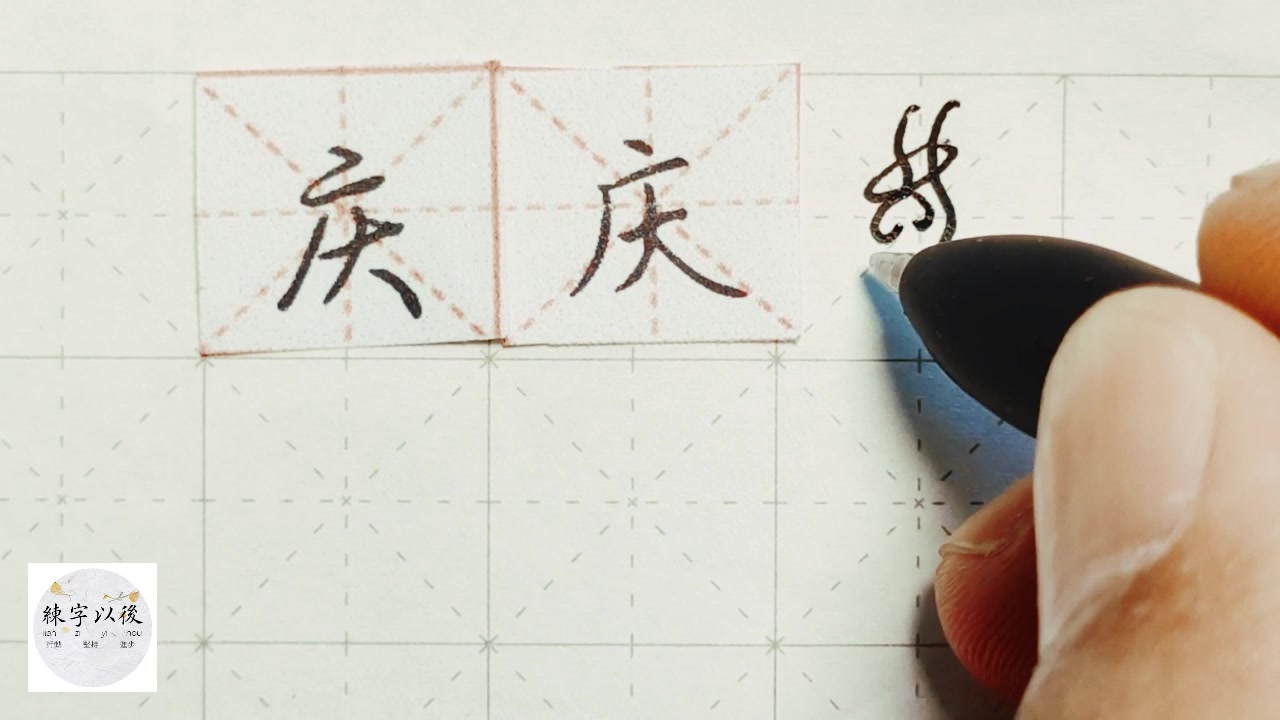 庆 庆
練字以後
lian zi yi hou
行動 堅持 進步